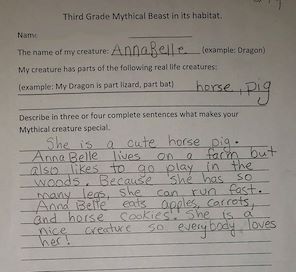 Third Grade Mythical Beast in its habitat.
Name
The name of my creature: AnnaBelle (example: Dragon)
My creature has parts of the following real life creatures:
(example: My Dragon is part lizard, part bat) horse, pig
Describe in three or four complete sentences what makes your
Mythical creature special.
She is a cute horse pig.
Anna Belle lives on a farm but
also likes to go play in the
woods. Because she has so
many legs, she can run fast.
Anna Belle eats apples, carrots,
and horse cookies. She is a
nice creature so everybody loves
her!